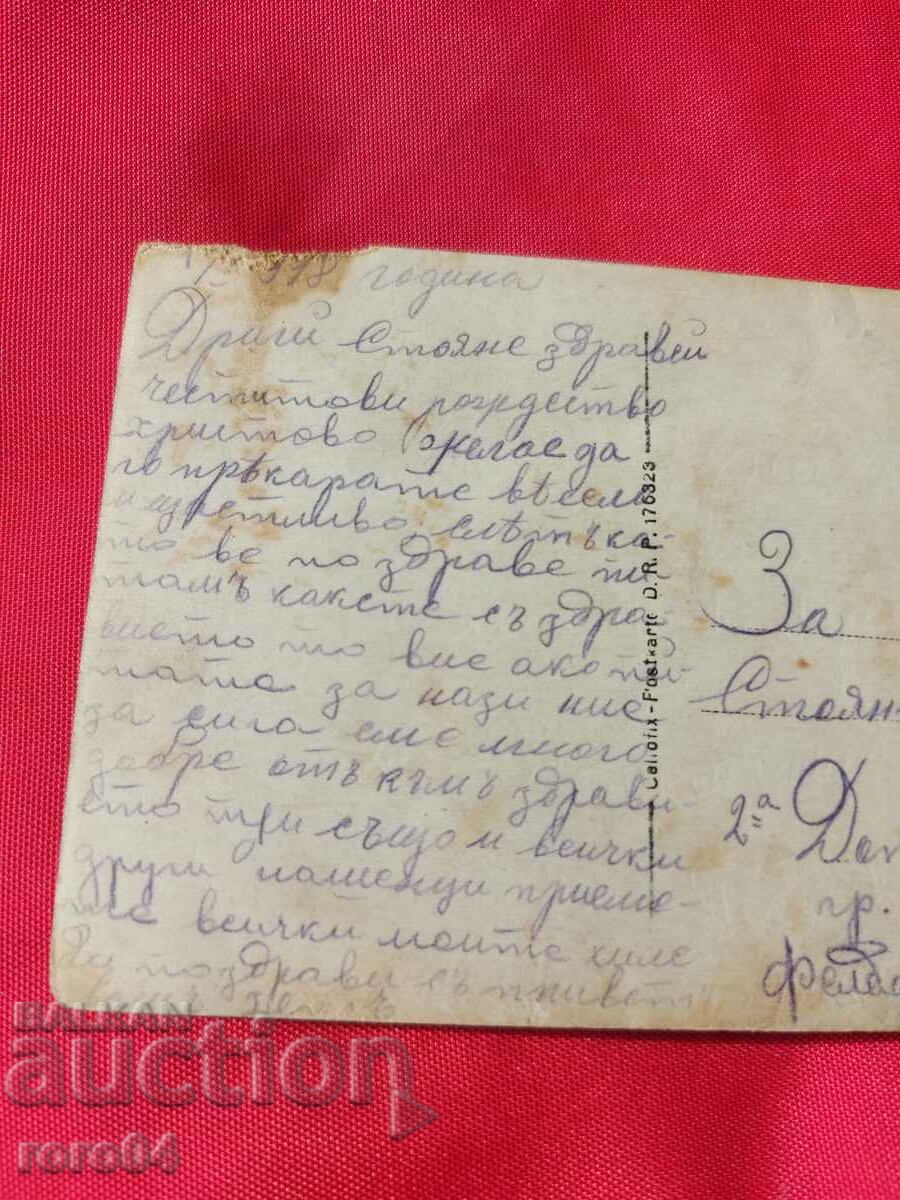 година
Драги Стояне здравей
честитови рождество
христово желая да
го прѣкарате вѣсело
и щастливо, слѣтъка-
то ве поздраве пи-
тамъ каксте съ здра-
вието то вие ако пи-
тате за нази ние
за сига сме много
добре откъмъ здрави-
ето три също и всички
други нашенци приеме-
те всички моите хиле
ди поздрави съ привет
Cellofix-Postkarte D. R. P. 176323
За
Стоян
2а
гр.
BALKAN
auction
roro04